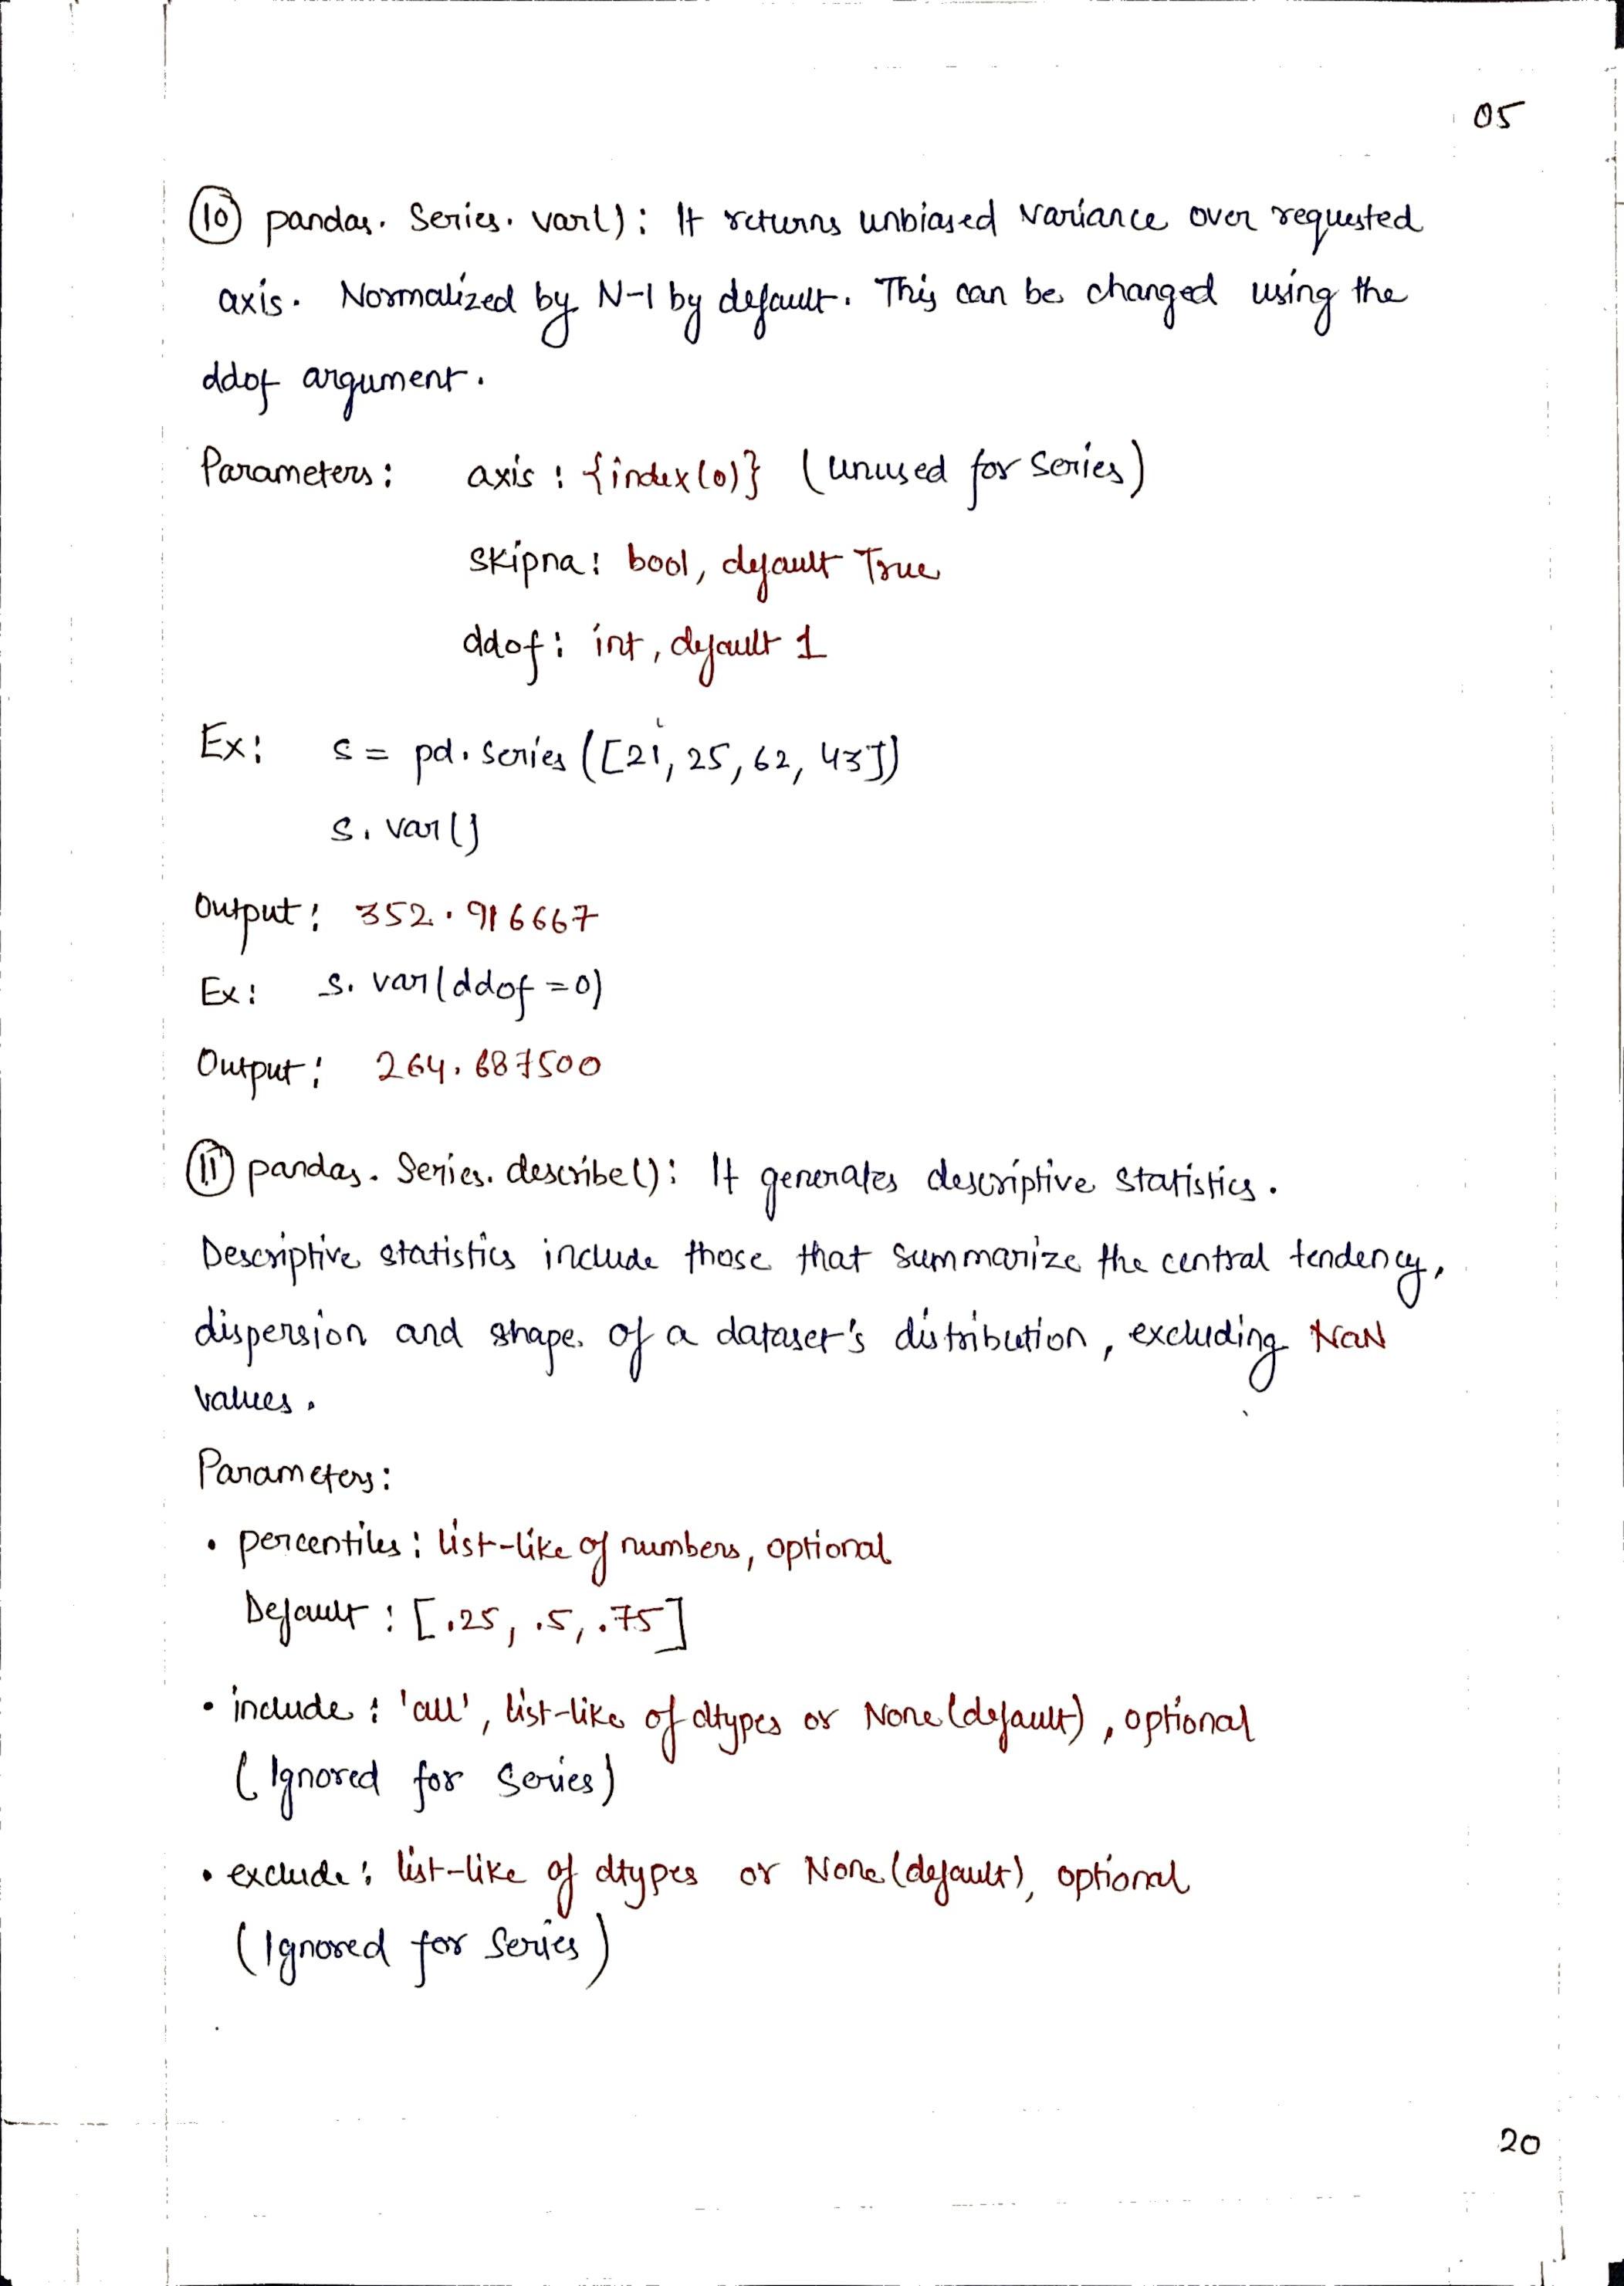 05
10 pandas. Series. var(): It returns unbiased variance over requested
axis. Normalized by N-1 by default. This can be changed using the
ddof argument.
Parameters: axis : {index(0)} (unused for Series)
skipna: bool, default True
ddof: int, default 1
Ex: s = pd. series ([21, 25, 62, 43])
s. var()
Output: 352.916667
Ex: s. var(ddof=0)
Output: 264.687500
11 pandas. Series. describe(): It generates descriptive statistics.
Descriptive statistics include those that summarize the central tendency,
dispersion and shape of a dataset's distribution, excluding NaN
values.
Parameters:
• percentiles: list-like of numbers, optional
Default : [.25, .5, .75]
• include : 'all', list-like of dtypes or None (default), optional
(Ignored for Series)
• exclude: list-like of dtypes or None (default), optional
(Ignored for Series)
20